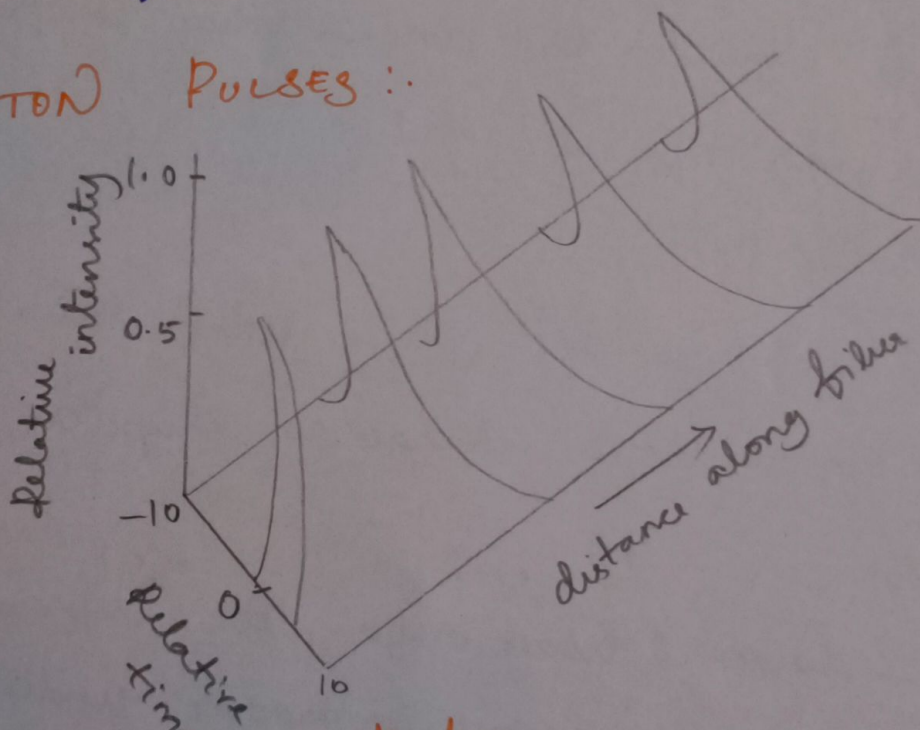 TON PULSES :.
Relative intensity
1.0
0.5
-10
0
10
Relative
distance along fibre